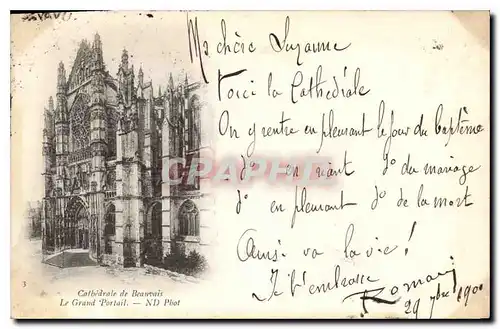 Ma chère Suzanne
Voici la Cathédrale
On y entre en pleurant le jour du baptême
do en riant do du mariage
do en pleurant do de la mort
Ainsi va la vie!
Je t'embrasse Romain
29 7bre 1900
Cathédrale de Beauvais
Le Grand Portail. — ND Phot
CARTE PRECIEUSE